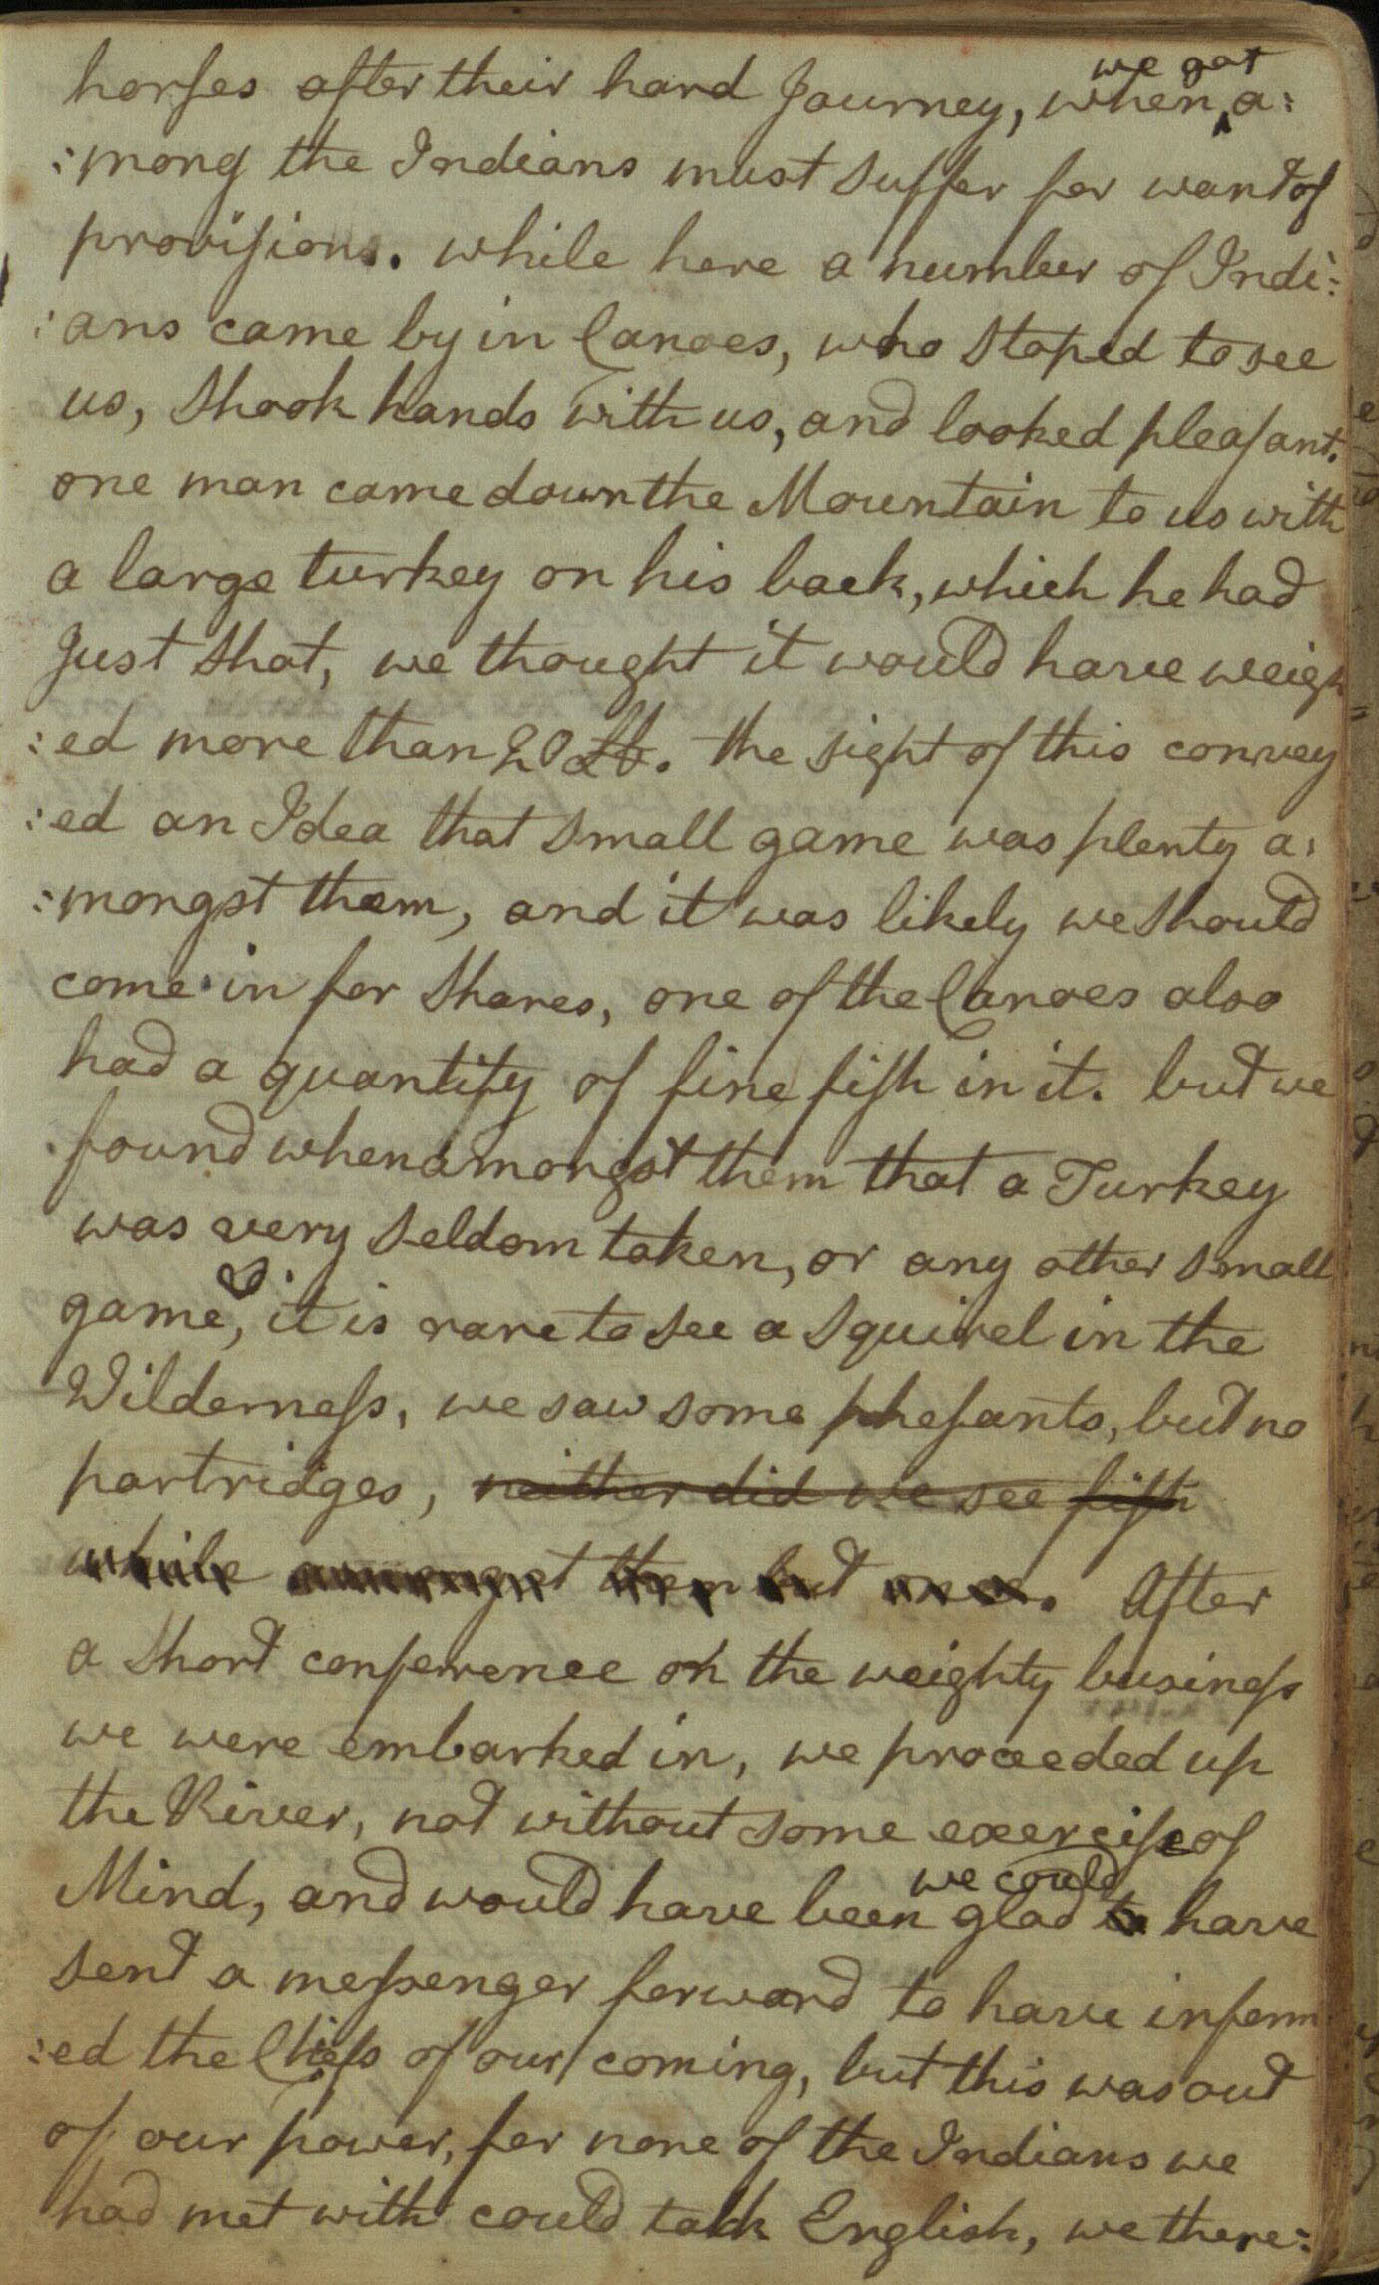 horses after their hard Journey, when we got a:
:mong the Indians must suffer for want of
provisions. while here a number of Indi:
:ans came by in Canoes, who stoped to see
us, shook hands with us, and looked pleasant.
one man came down the Mountain to us with
a large turkey on his back, which he had
Just shot, we thought it would have weigh
:ed more than 20 lb. the sight of this convey
:ed an Idea that small game was plenty a:
:mongst them, and it was likely we should
come in for shares, one of the Canoes also
had a quantity of fine fish in it. but we
found when amongst them that a Turkey
was very seldom taken, or any other small
game, it is rare to see a squirel in the
Wilderness, we saw some phesants, but no
partridges, neither did we see fish
while amongst them but once. After
a short conference on the weighty business
we were embarked in, we proceeded up
the River, not without some exercise of
Mind, and would have been glad we could have
sent a messenger forward to have inform
:ed the Chiefs of our coming, but this was out
of our power, for none of the Indians we
had met with could talk English, we there: